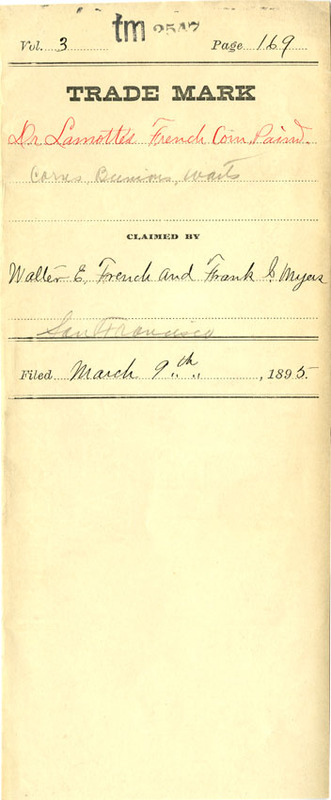 tm 2547
Vol. 3 Page 169
TRADE MARK
Dr Lamotte's French Corn Paint.
Corns Bunions, Warts
CLAIMED BY
Walter E. French and Frank G. Myers
San Francisco
Filed March 9th, 1895